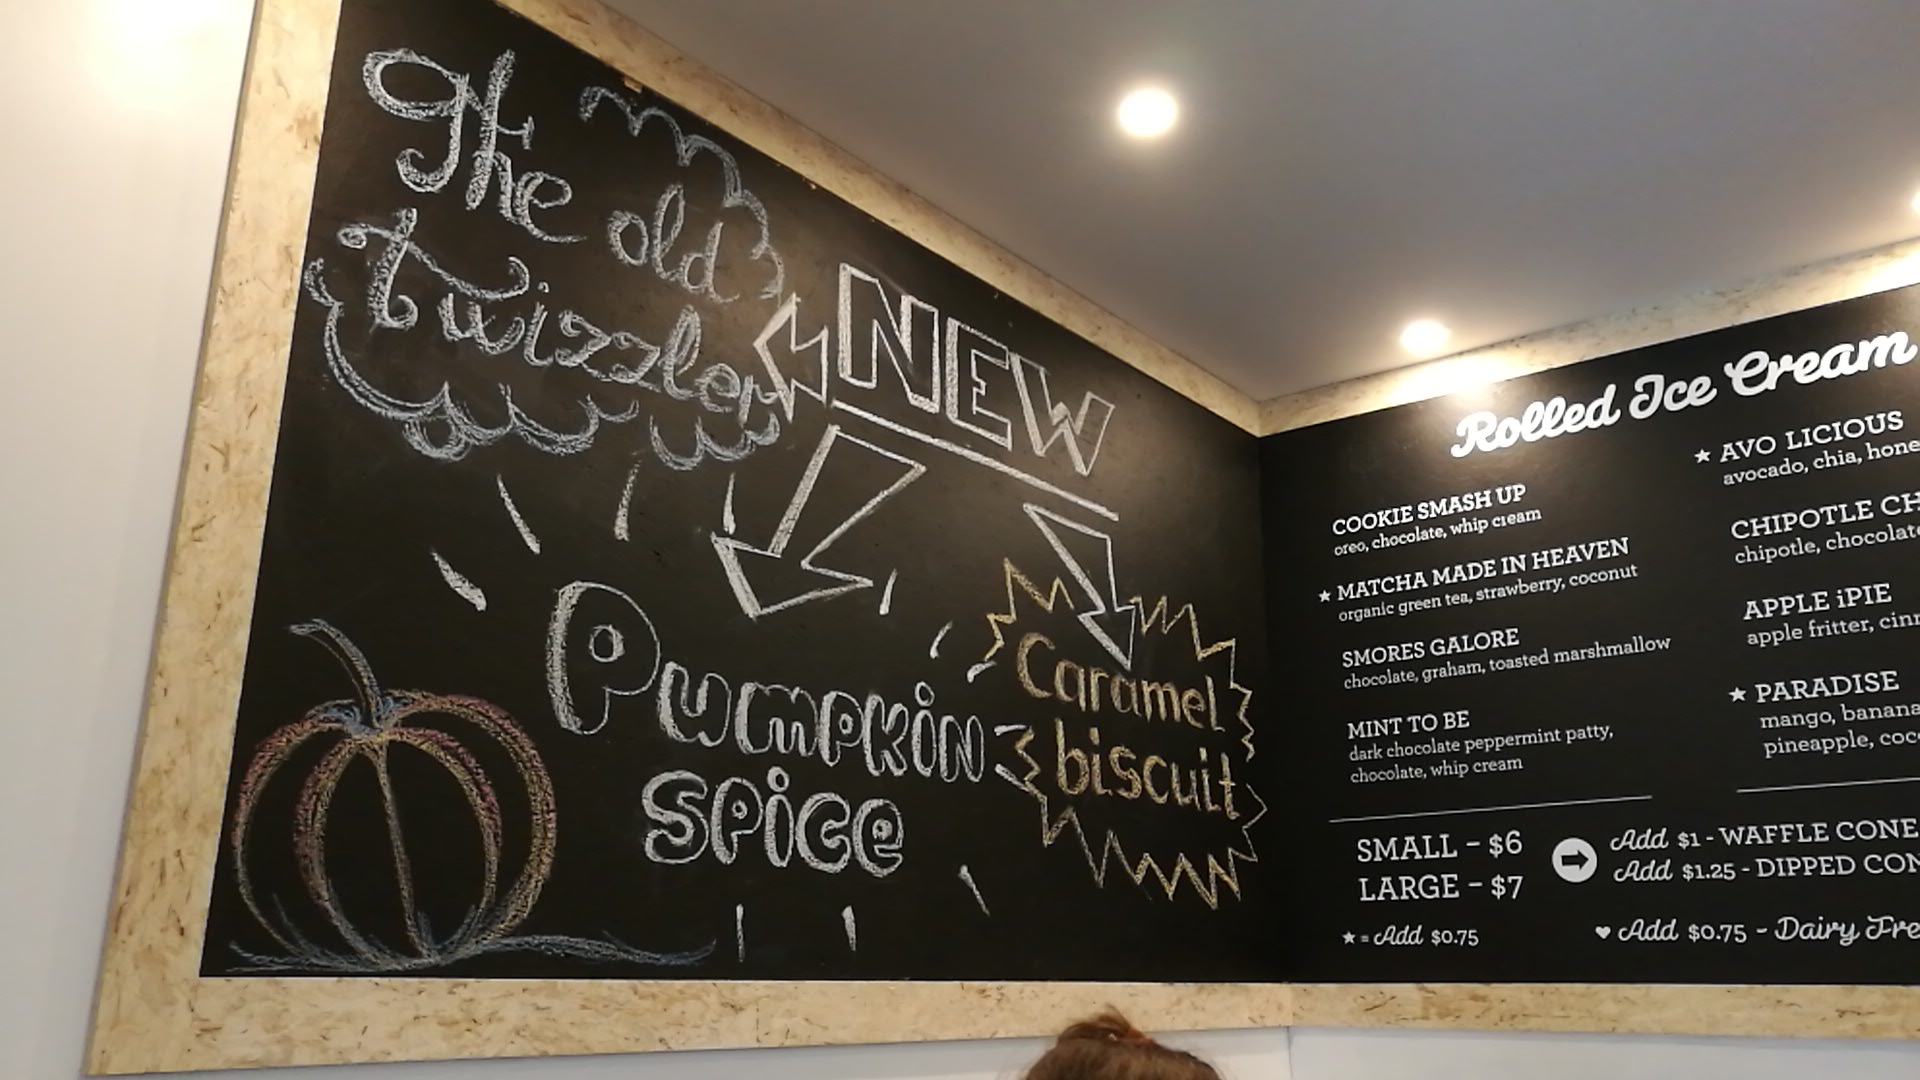 The old
twizzler
NEW
Pumpkin
Spice
Caramel
biscuit
Rolled Ice Cream
COOKIE SMASH UP
oreo, chocolate, whip cream
★ MATCHA MADE IN HEAVEN
organic green tea, strawberry, coconut
SMORES GALORE
chocolate, graham, toasted marshmallow
MINT TO BE
dark chocolate peppermint patty,
chocolate, whip cream
★ AVO LICIOUS
avocado, chia,
CHIPOTLE
chipotle,
APPLE iPIE
apple fritter,
★ PARADISE
mango,
pineapple,
SMALL - $6
LARGE - $7
Add $1 - WAFFLE CONE
Add $1.25 - DIPPED
★ = Add $0.75
♥ Add $0.75 - Dairy